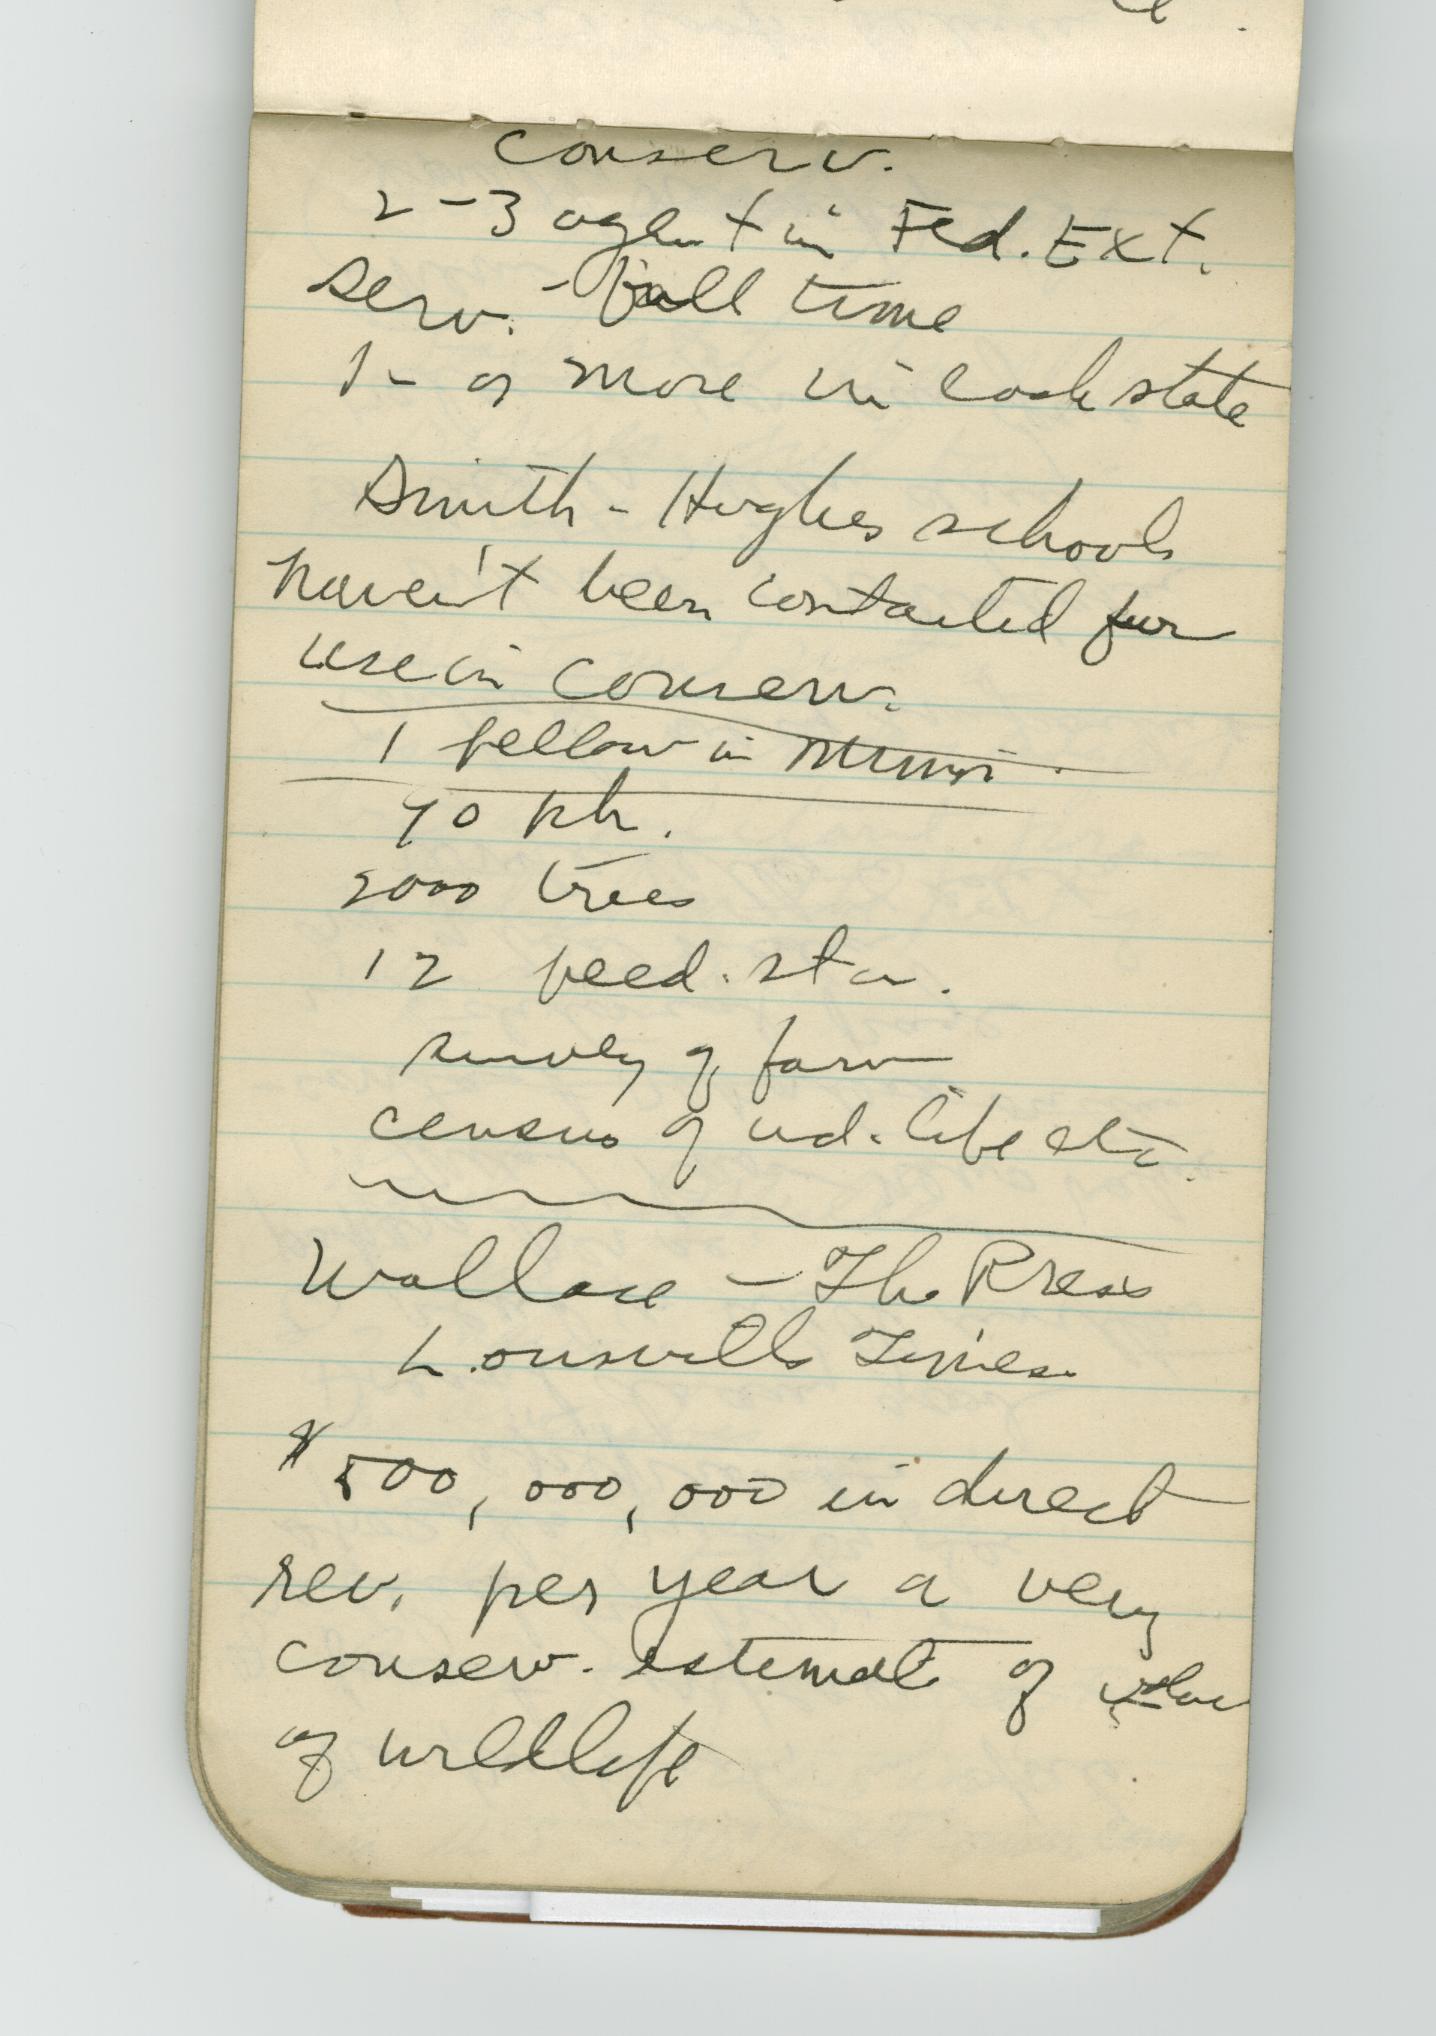 conserv.
2-3 agent in Fed. Ext.
serv. - full time
1 - or more in each state
Smith-Hughes schools
haven't been contacted for
use in conserv.
1 fellow in Minn.
90 ph.
2000 trees
12 feed. sta.
survey of farm
census of wd. life etc.
Wallace - The Press
Louisville Times.
$500,000,000 in direct
rev. per year a very
conserv. estimate of
of wildlife